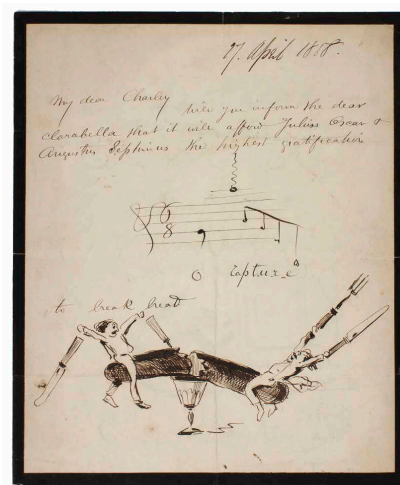 17. April 1888.
My dear Charley will you inform the dear
Clarabella that it will afford Julius Oscar &
Augustus Sephinus the highest gratification
6
8
O rapture
to break bread